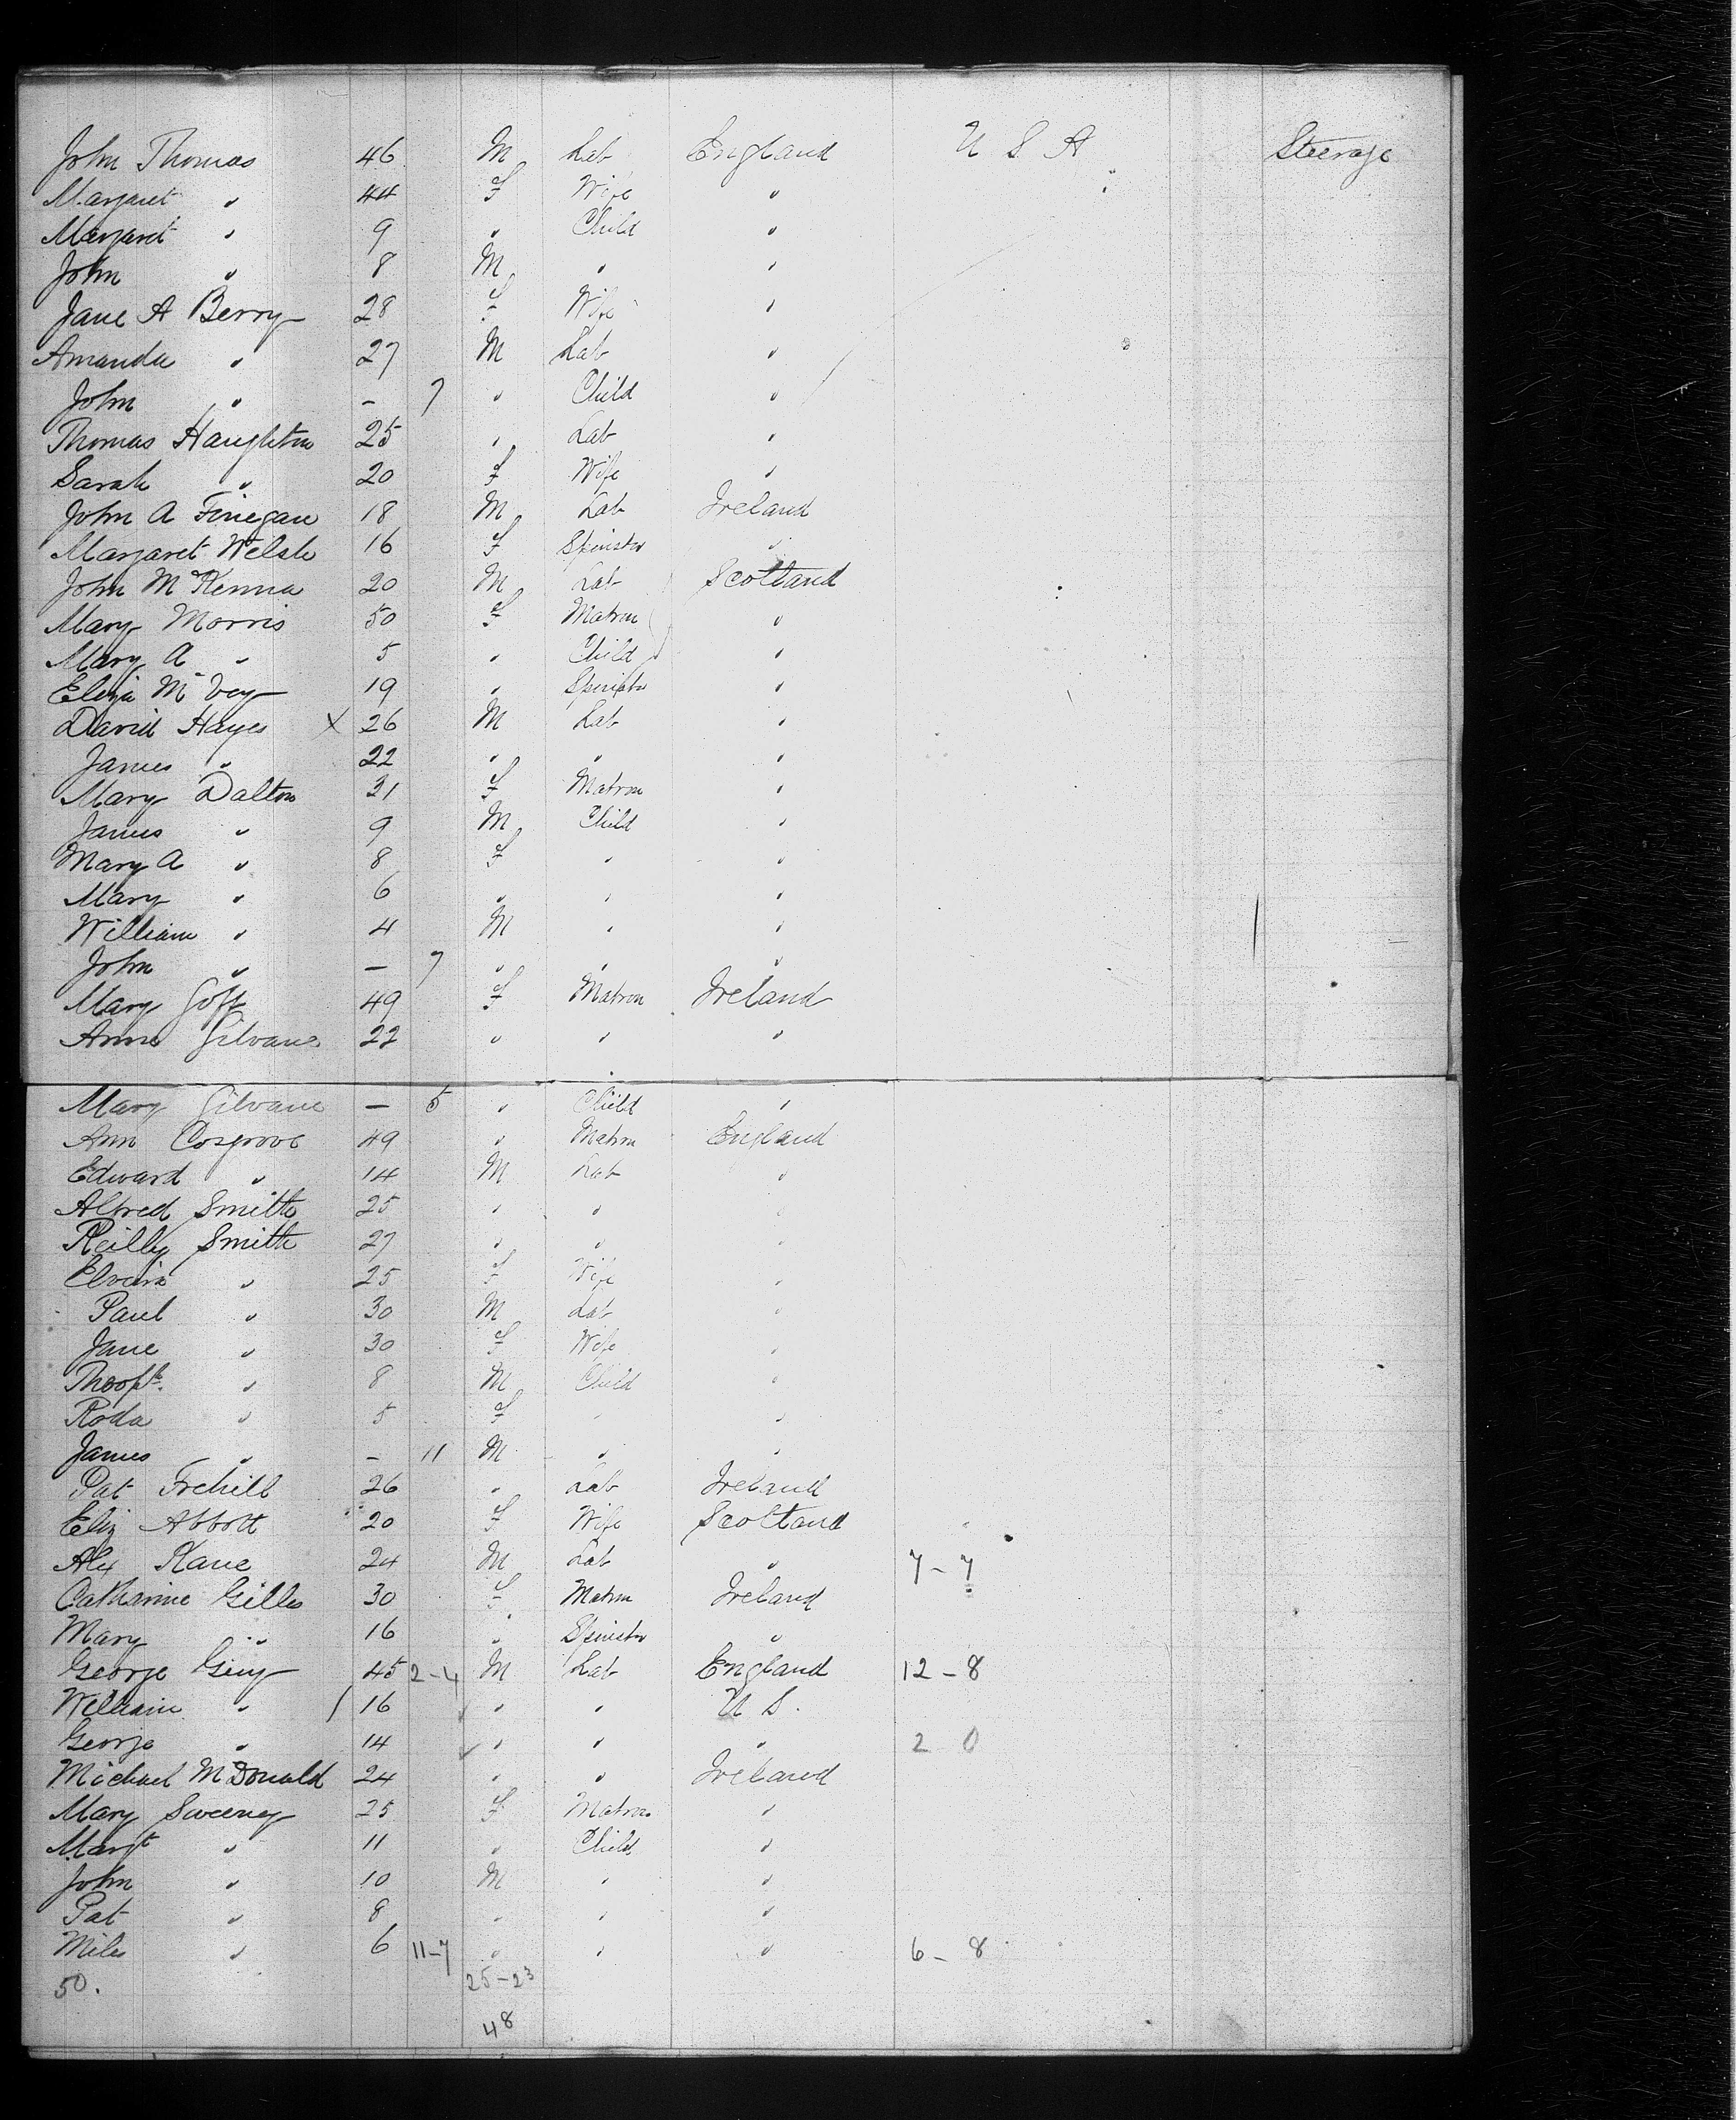 John Thomas 46 M Lab England U S A Steerage
Margaret " 44 F Wife "
Margaret " 9 " Child "
John " 8 M " "
Jane A Berry 28 F Wife "
Amanda " 27 M Lab "
John " – 7 " Child "
Thomas Haughton 25 " Lab "
Sarah " 20 F Wife "
John A Finegan 18 M Lab Ireland
Margaret Welsh 16 F Spinster "
John McKenna 20 M Lab Scotland
Mary Morris 50 F Matron "
Mary A " 5 " Child "
Eliza McVey 19 " Spinster "
David Hayes X 26 M Lab "
James " 22 " " "
Mary Dalton 31 F Matron "
James " 9 M Child "
Mary A " 8 F " "
Mary " 6 " " "
William " 4 M " "
John " – 7 " " "
Mary Goff 49 F Matron Ireland
Anne Gilvane 22 " " "
Mary Gilvane – 5 " Child "
Ann Cosgrove 49 " Matron England
Edward " 14 M Lab "
Alfred Smith 25 " " "
Reilly Smith 27 " " "
Elvira " 25 F Wife "
Paul " 30 M Lab "
Jane " 30 F Wife "
" 8 M Child "
Roda " 5 F " "
James " – 11 M " "
Pat Frehill 26 " Lab Ireland
Eliz Abbott 20 F Wife Scotland
Alex Kane 24 M Lab " 7 – 7
Catharine Gilles 30 F Matron Ireland
Mary " 16 " Spinster "
George Guy 45 2–4 M Lab England 12 – 8
William " / 16 " " U S.
George " 14 " " " 2 0
Michael McDonald 24 " " Ireland
Mary Sweeney 25 F Matron "
Margt " 11 " Child "
John " 10 M " "
Pat " 8 " " "
Miles " 6 11–7 " " " 6 – 8
50. 25–23
48